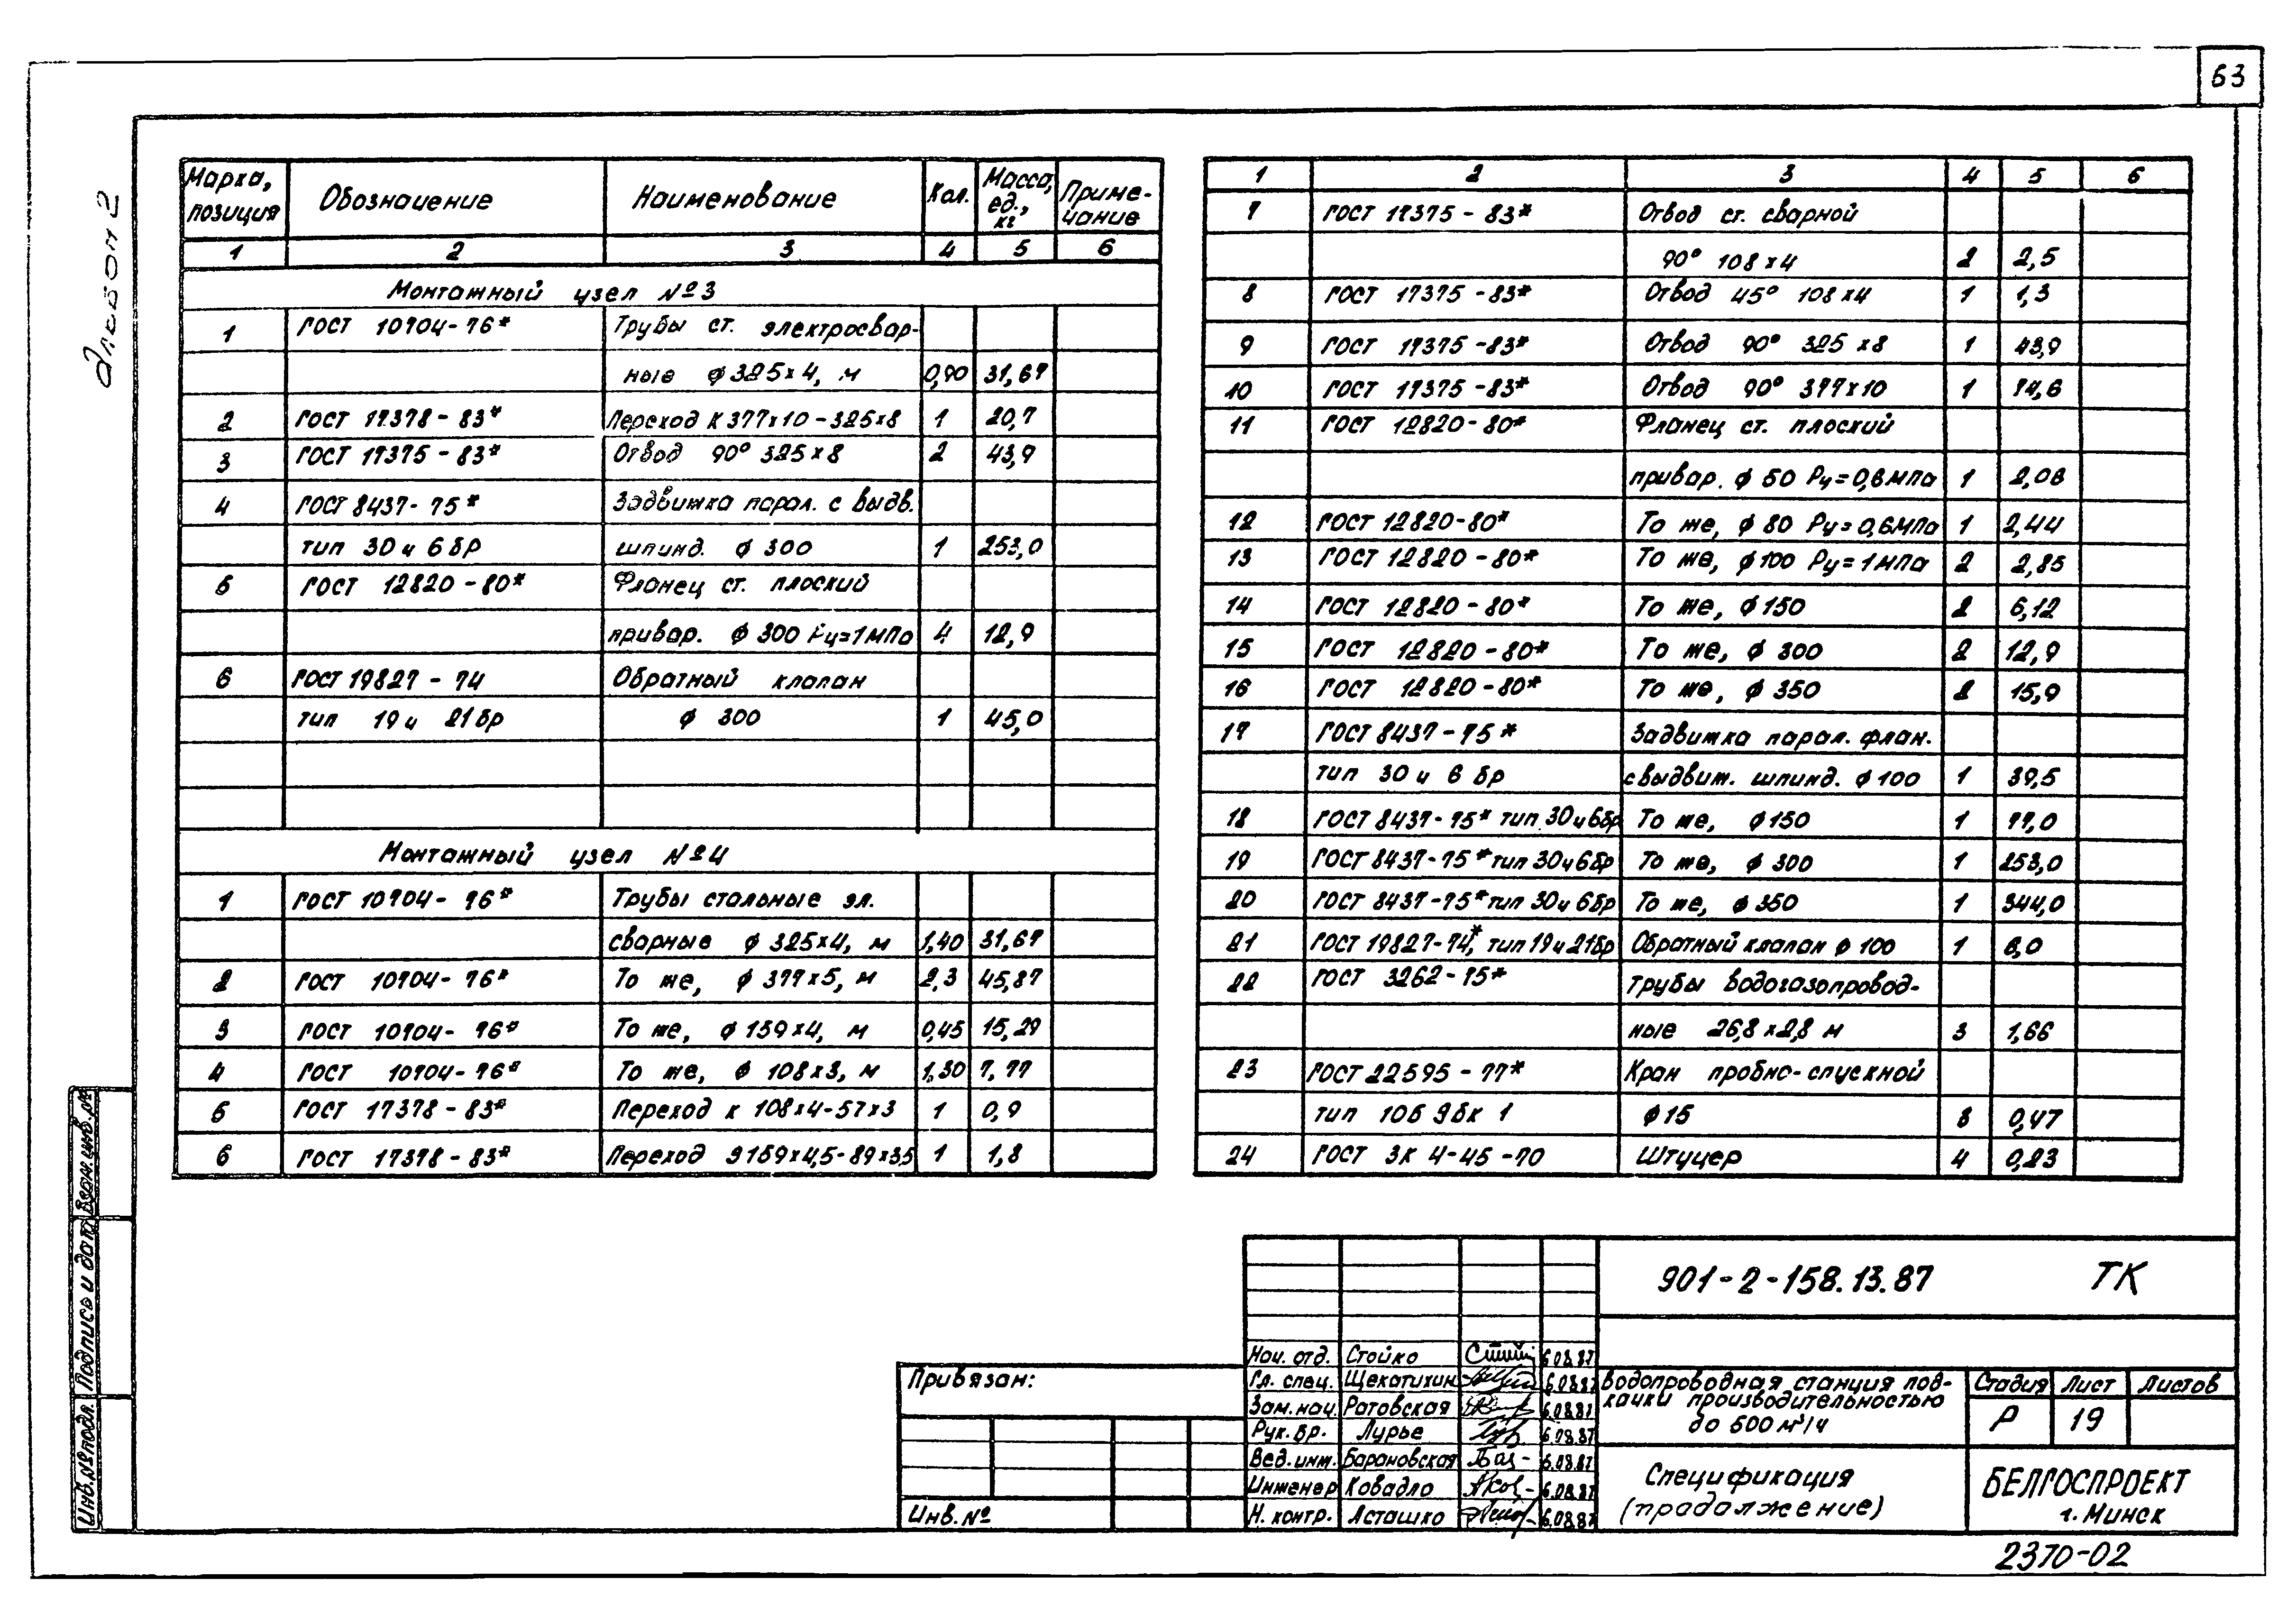 63
Альбом 2
Марка, позиция | Обозначение | Наименование | Кол. | Масса, ед., кг | Приме-чание
1 | 2 | 3 | 4 | 5 | 6
Монтажный узел №3
1 | ГОСТ 10704-76* | Трубы ст. электросвар-
ные ф325х4, м | 0,90 | 31,67
2 | ГОСТ 17378-83* | Переход К 377х10-325х8 | 1 | 20,7
3 | ГОСТ 17375-83* | Отвод 90° 325х8 | 2 | 43,9
4 | ГОСТ 8437-75* | Задвижка парал. с выдв.
тип 30ч 6бр | шпинд. ф 300 | 1 | 253,0
5 | ГОСТ 12820-80* | Фланец ст. плоский
привар. ф 300 Ру=1МПа | 4 | 12,9
6 | ГОСТ 19827-74 | Обратный клапан
тип 19ч 21бр | ф 300 | 1 | 45,0
Монтажный узел №4
1 | ГОСТ 10704-76* | Трубы стальные эл.
сварные ф 325х4, м | 1,40 | 31,67
2 | ГОСТ 10704-76* | То же, ф 377х5, м | 2,3 | 45,87
3 | ГОСТ 10704-76* | То же, ф 159х4, м | 0,45 | 15,29
4 | ГОСТ 10704-76* | То же, ф 108х3, м | 1,30 | 7,77
5 | ГОСТ 17378-83* | Переход К 108х4-57х3 | 1 | 0,9
6 | ГОСТ 17378-83* | Переход Э159х4,5-89х3,5 | 1 | 1,8
1 | 2 | 3 | 4 | 5 | 6
7 | ГОСТ 17375-83* | Отвод ст. сварной
90° 108х4 | 2 | 2,5
8 | ГОСТ 17375-83* | Отвод 45° 108х4 | 1 | 1,3
9 | ГОСТ 17375-83* | Отвод 90° 325х8 | 1 | 43,9
10 | ГОСТ 17375-83* | Отвод 90° 377х10 | 1 | 74,6
11 | ГОСТ 12820-80* | Фланец ст. плоский
привар. ф 50 Ру=0,6МПа | 1 | 2,08
12 | ГОСТ 12820-80* | То же, ф 80 Ру=0,6МПа | 1 | 2,44
13 | ГОСТ 12820-80* | То же, ф100 Ру=1МПа | 2 | 2,85
14 | ГОСТ 12820-80* | То же, ф150 | 2 | 6,12
15 | ГОСТ 12820-80* | То же, ф 300 | 2 | 12,9
16 | ГОСТ 12820-80* | То же, ф 350 | 2 | 15,9
17 | ГОСТ 8437-75* | Задвижка парал. флан.
тип 30ч 6бр | с выдвиж. шпинд. ф100 | 1 | 39,5
18 | ГОСТ 8437-75* тип 30ч6бр | То же, ф150 | 1 | 77,0
19 | ГОСТ 8437-75* тип 30ч6бр | То же, ф 300 | 1 | 253,0
20 | ГОСТ 8437-75* тип 30ч6бр | То же, ф 350 | 1 | 344,0
21 | ГОСТ 19827-74*, тип 19ч21бр | Обратный клапан ф 100 | 1 | 6,0
22 | ГОСТ 3262-75* | Трубы водогазопровод-
ные 26,8х2,8 м | 3 | 1,66
23 | ГОСТ 22595-77* | Кран пробно-спускной
тип 10Б 9бк 1 | ф15 | 8 | 0,47
24 | ГОСТ ЗК 4-45-70 | Штуцер | 4 | 0,23
Инв.№подл. | Подпись и дата | Взам.инв.№
Привязан:
Инв.№
901-2-158.13.87 ТК
Нач. отд. | Стойко | 6.08.87
Гл. спец. | Щекатихин | 6.08.87
Зам.нач. | Ратовская | 6.08.87
Рук.бр. | Лурье | 6.08.87
Вед.инж. | Барановская | 6.08.87
Инженер | Ковадло | 6.08.87
Н. контр. | Асташко | 6.08.87
Водопроводная станция под-
качки производительностью
до 500 м³/ч
Стадия | Лист | Листов
Р | 19
Спецификация
(продолжение)
БЕЛГОСПРОЕКТ
г. Минск
2370-02